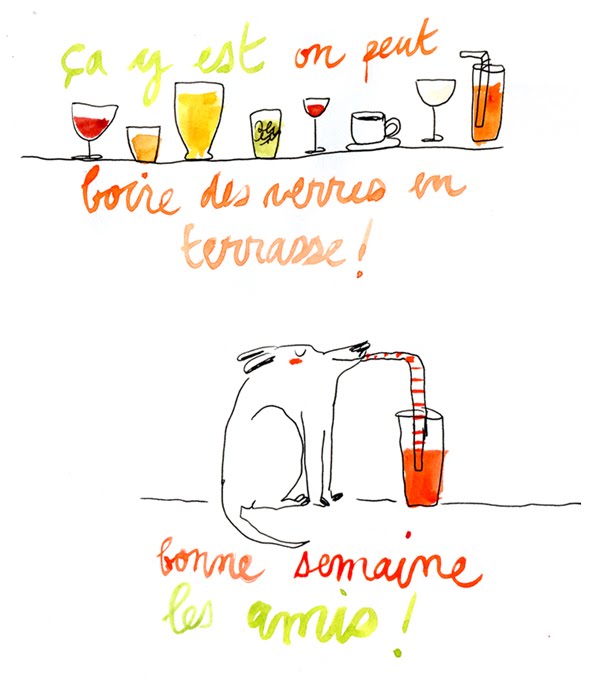 ça y est on peut
boire des verres en
terrasse !
bonne semaine
les amis !